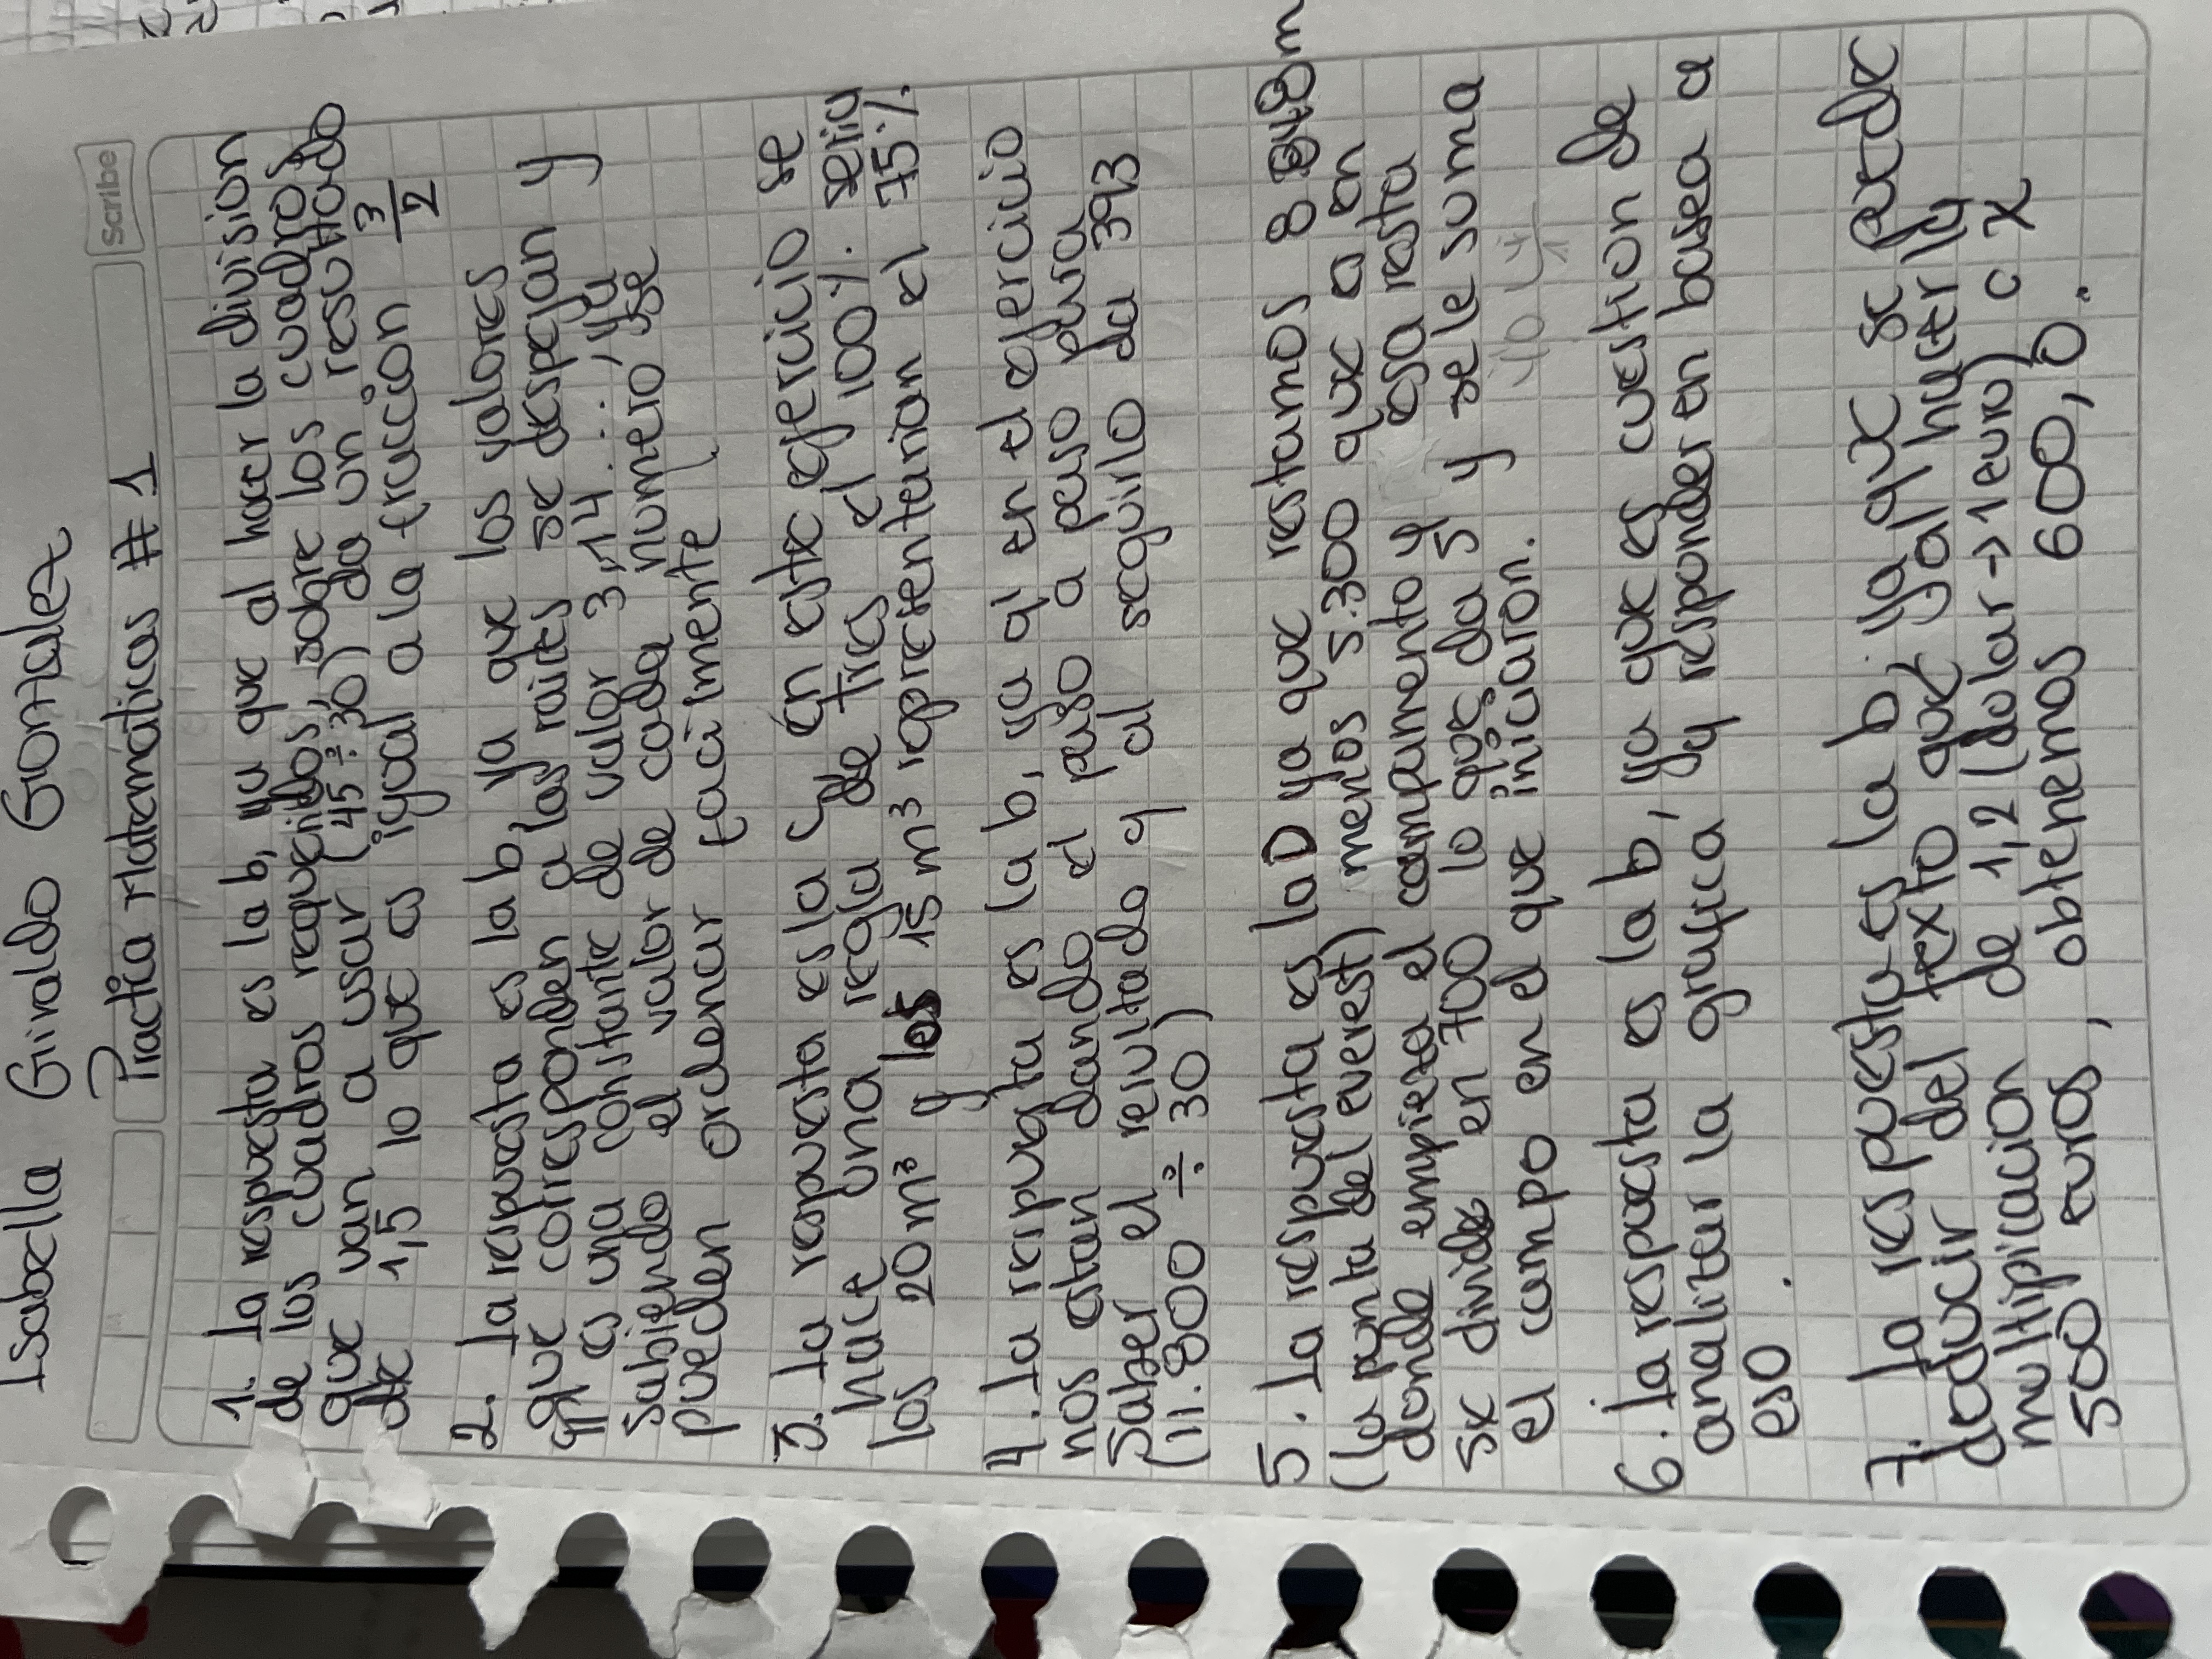 Isabella Giraldo Gonzalez
Scribe
Practia Matemáticas #1
1. la respuesta es la b, ya que al hacer la division
de los cuadros requeridos, sobre los cuadros
que van a usar (45÷30) da un resultado
de 1,5 lo que es igual a la fracción 3/2
2. la respuesta es la b, ya que los valores
que corresponden a las raices se despejan y
π es una constante de valor 3,14...; ya
sabiendo el valor de cada numero se
pueden ordenar facilmente
3. la respuesta es la C, en este ejercicio se
hace una regla de tres el 100%. seria
los 20m³ y los 15 m³ representarian el 75%.
4. la respusta es la b, ya q' en el ejercicio
nos estan dando el paso a paso para
saber el reiultado y al seguirlo da 393
(11.800 ÷ 30)
5. la respuesta es la D ya que restamos 8 848m
(la punta del everest) menos 5.300 que a en
donde empieza el campamento y esa resta
se divide en 700 lo que da 5 y se le suma
el campo en el que iniciaron.
6. la respuesta es la b, ya que es cuestion de
analizar la grafica y responder en basea a
eso.
7. la respuesta es la b, ya que se puede
deducir del texto que, yal hacer la
multipicacion de 1,2 (dolar → 1 euro) c x
500 euros, obtenemos 600,0.